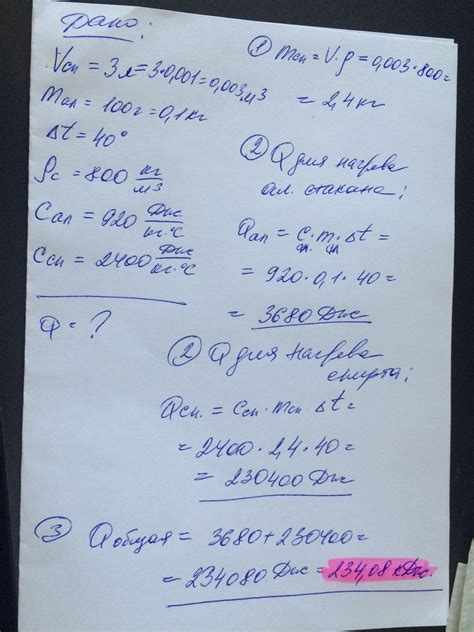 Дано:
Vсп = 3л = 3·0,001 = 0,003м³
mал = 100г = 0,1кг
Δt = 40°
ρс = 800 кг/м³
Cал = 920 Дж/кг·°C
Cсп = 2400 Дж/кг·°C
Q = ?
① mсп = V·ρ = 0,003·800 =
= 2,4 кг
② Q для нагрева
ал. стакана:
Qал = c·m·Δt =
ал. ал
= 920·0,1·40 =
= 3680 Дж
② Q для нагрева
спирта:
Qсп. = Cсп·mсп·Δt =
= 2400·2,4·40 =
= 230400 Дж
③ Qобщая = 3680 + 230400 =
= 234080 Дж = 234,08 кДж.